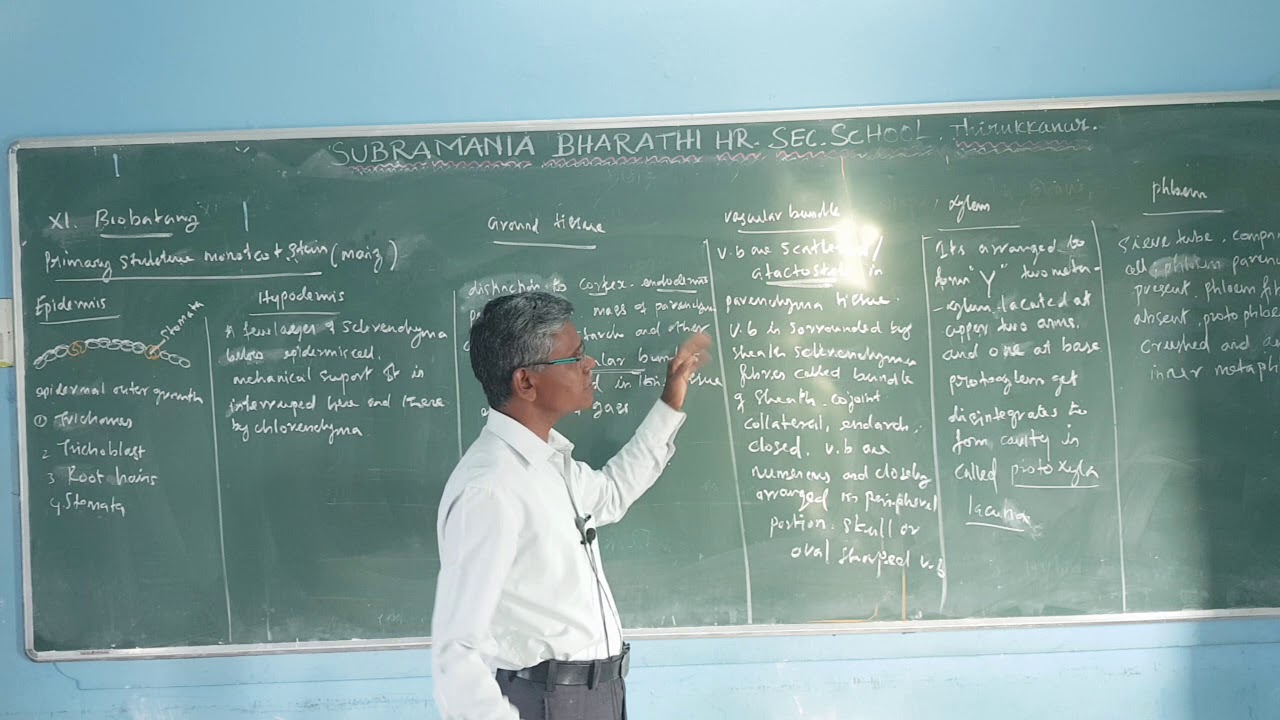 SUBRAMANIA BHARATHI HR. SEC. SCHOOL, Thirukkanur.
XI. Biobatany
Primary structure monocot stem (maiz)
Epidermis
Stomata
epidermal outer growth
① Trichomes
2 Trichoblast
3 Root hairs
4 Stomata
Hypodermis
A few layers of sclerenchyma
below epidermis cell.
mechanical support It is
interrupted here and there
by chlorenchyma
Ground tissue
distinction to cortex. endodermis
mass of parenchyma
starch and other
vascular bundle
in this tissue
vascular bundle
V.b are scattered /
atactostele in
parenchyma tissue.
V.b is sorrounded by
sheath sclerenchyma
fibres called bundle
of sheath. cojoint
collateral, endarch,
closed. V.b are
numerous and closely
arranged in peripheral
portion. Skull or
oval shaped V.b
xylem
Its arranged to
form "Y" two meta-
xylem located at
upper two arms.
and one at base
protoxylem get
disintegrates to
form cavity in
called protoxyla
lacuna
phloem
Sieve tube, compa
cell, phloem paren
present. phloem fi
absent. protophloe
crushed and
inner metaph